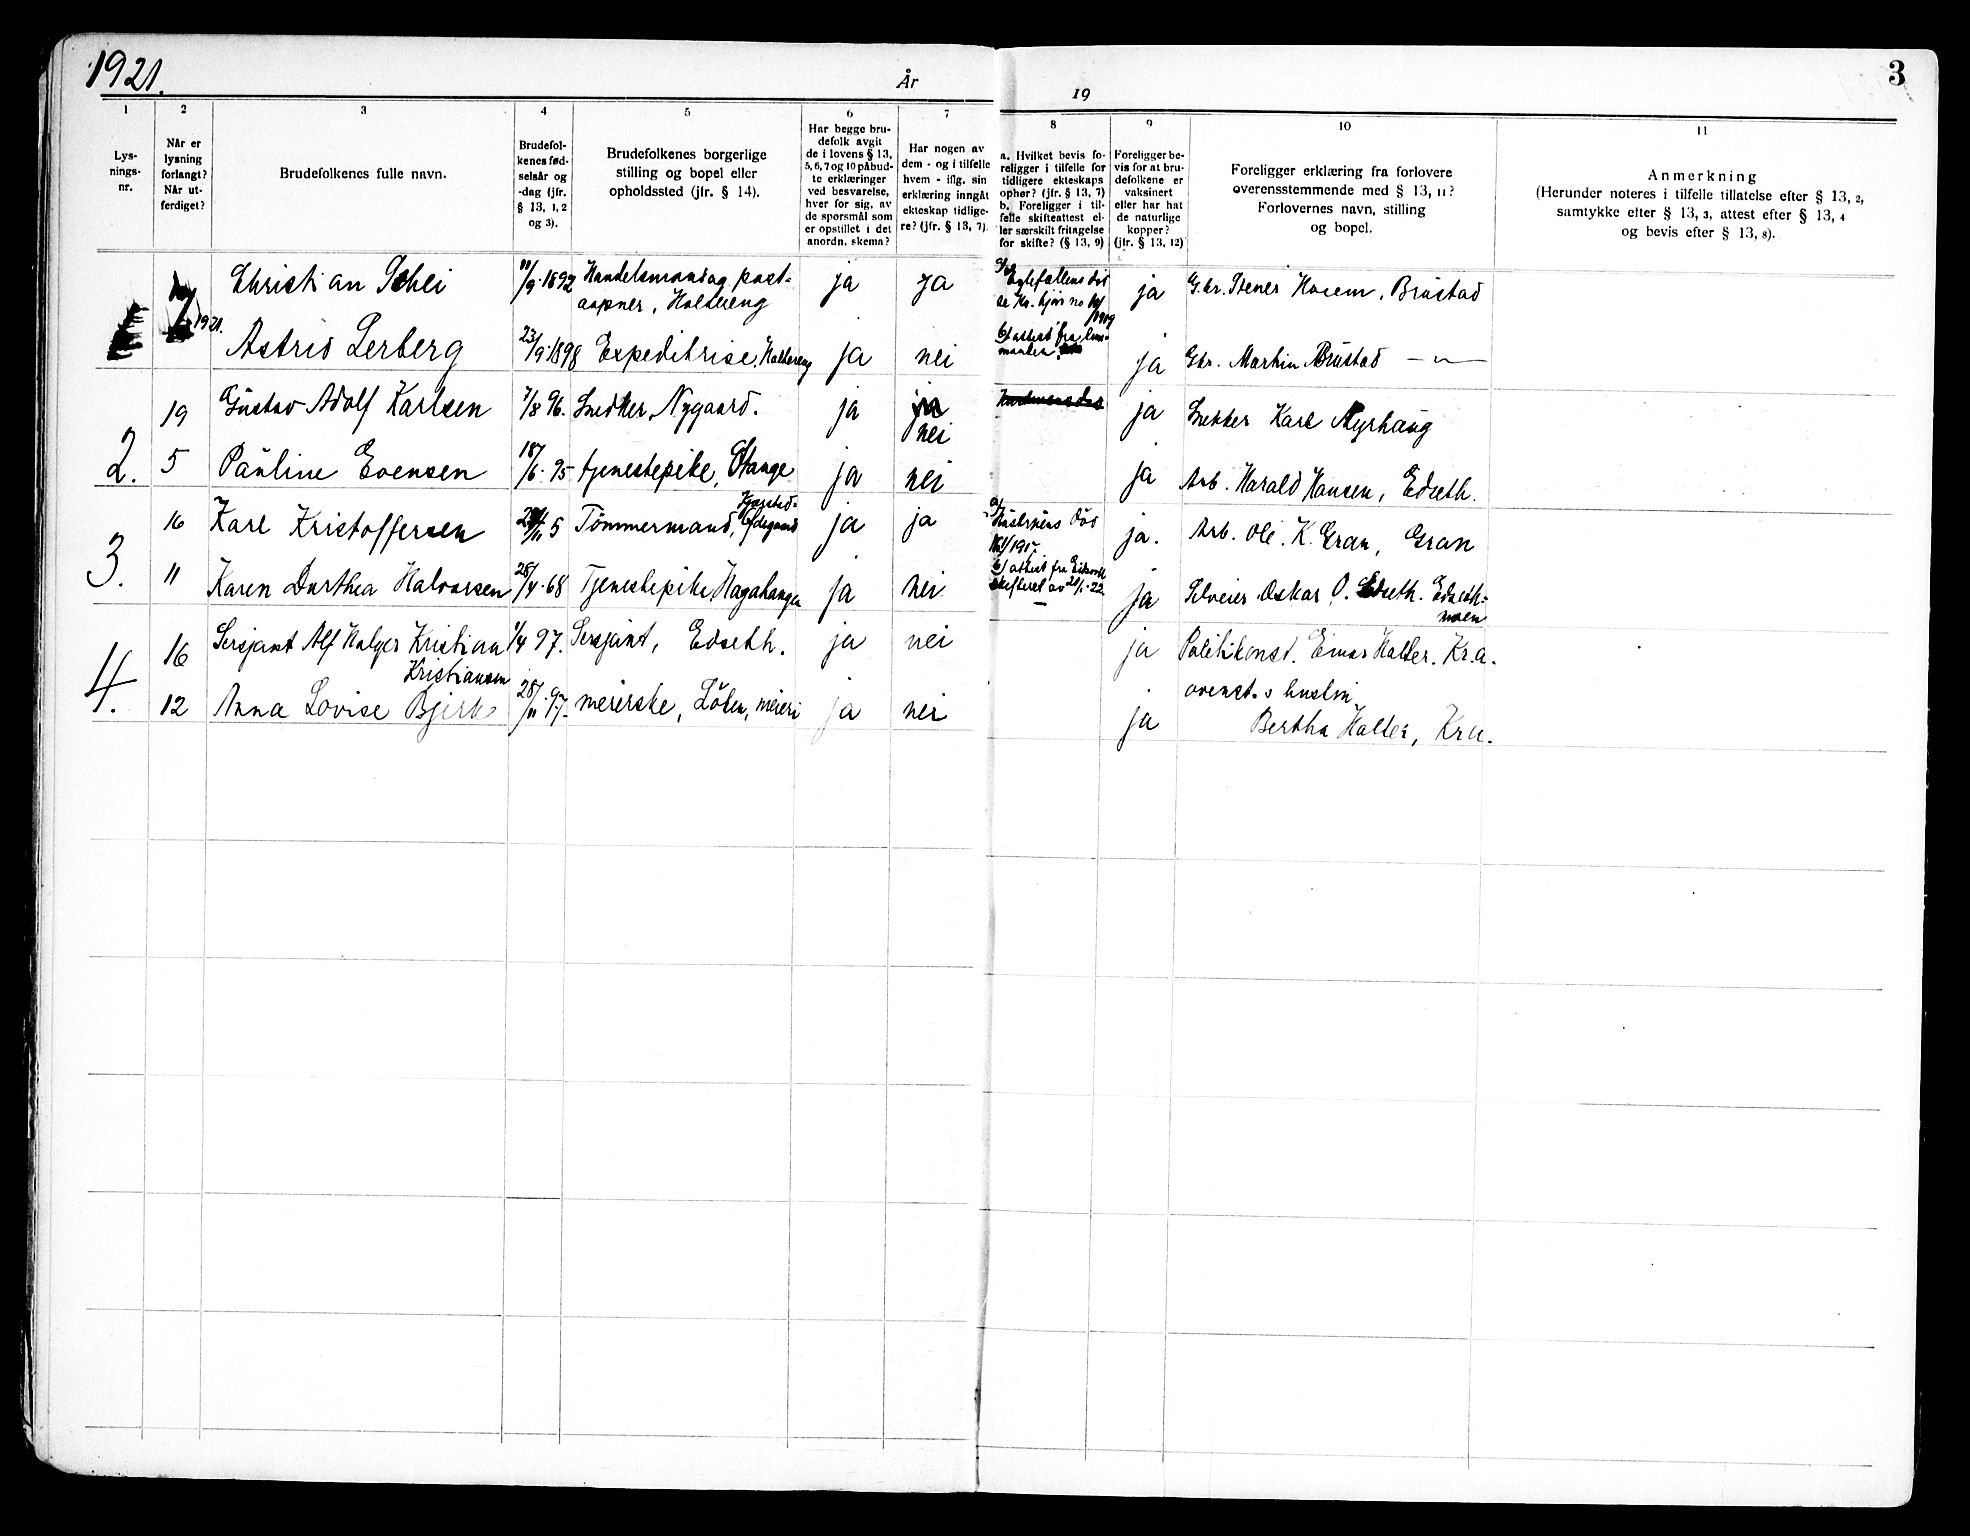 1921.
År
19
3
1
2
3
4
5
6
7
8
9
10
11
Lys-
nings-
nr.
Når er
lysning
forlangt?
Når ut-
ferdiget?
Brudefolkenes fulle navn.
Brudefol-
kenes fød-
selsår og
-dag (jfr.
§ 13, 1, 2
og 3).
Brudefolkenes borgerlige
stilling og bopel eller
opholdssted (jfr. § 14).
Har begge bru-
defolk avgit
de i lovens § 13,
5, 6, 7 og 10 påbud-
te erklæringer
ved besvarelse,
hver for sig, av
de spørsmål som
er opstillet i det
anordn. skema?
Har nogen av
dem - og i tilfelle
hvem - iflg. sin
erklæring inngåt
ekteskap tidlige-
re? (jfr. § 13, 7).
a. Hvilket bevis fo-
religger i tilfelle for
tidligere ekteskaps
ophør? (jfr. § 13, 7)
b. Foreligger i til-
felle skifteattest el-
ler særskilt fritagelse
for skifte? (§ 13, 9)
Foreligger be-
vis for at bru-
defolkene er
vaksinert
eller har hat
de naturlige
kopper?
(jfr. § 13, 12)
Foreligger erklæring fra forlovere
overensstemmende med § 13, 11?
Forlovernes navn, stilling
og bopel.
Anmerkning
(Herunder noteres i tilfelle tillatelse efter § 13, 2,
samtykke efter § 13, 3, attest efter § 13, 4
og bevis efter § 13, 8).
1921.
Christian Schei
11/9.1892
Handelsmand og post-
aapner, Holtereng
ja
ja
a/ Egtefællens død
ja
Gbr. Stener Hosem, Brustad
Astrid Lerberg
23/9.1898
Expeditrise, Haltereng
ja
nei
b/ attest fra lens-
manden
ja
Gbr. Martin Brustad —"—
2.
19
Gustav Adolf Karlsen
7/8 96.
Snedker, Nygaard.
ja
nei
ja
Snekker Karl Myrhaug
5
Pauline Evensen
18/6. 95
tjenestepike, Stange
ja
nei
ja
Arb. Harald Hansen, Edseth.
3.
16
Karl Kristoffersen
Tömmermand,
ja
ja
a/ Hustruens död
1917.
ja.
Arb. Ole. K. Gran, Gran
11
Karen Dorthea Halvorsen
28/4.68
Tjenestepike, Hagahaugen
ja
nei
b/ attest fra Eidsvoll
skifteret av 20/1-22
ja
Selveier Oskar O. Edseth. Edseth-
moen
4.
16
Sersjant Alf Holger Kristian
Kristiansen
1/4 97.
Sersjant, Edseth.
ja
nei
ja
Politikonst. Einar Halter. Kr.a.
12
Anna Lovise Bjerk
28/11.97.
meierske, Löten, meieri
ja
nei
ja
ovenst.s hustru
Bertha Halter, Kra.